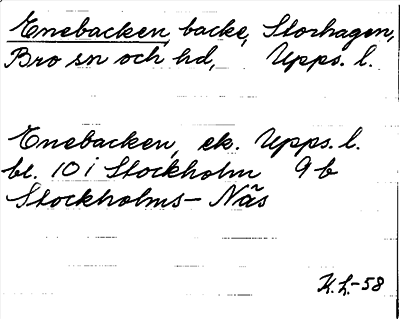 Enebacken, backe, Storhagen,
Bro sn och hd, Upps. l.
Enebacken, ek. Upps. l.
bl. 10 i Stockholm 9 b
Stockholms-Näs
K.L.-58